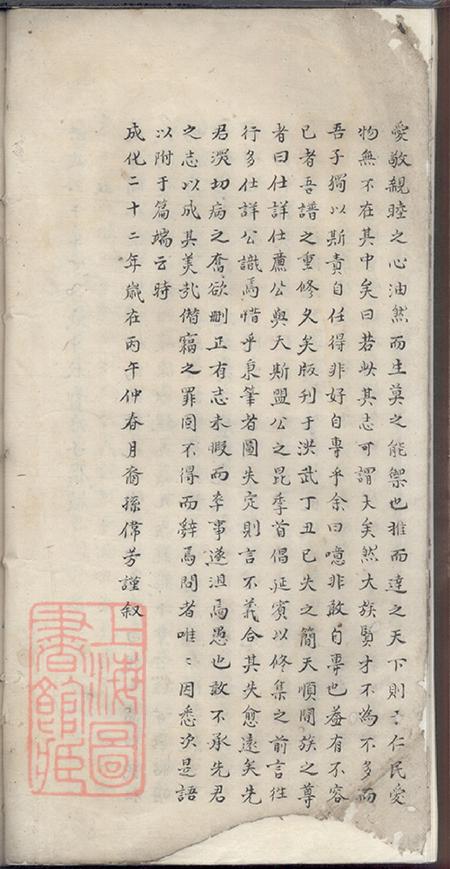 愛敬親睦之心油然而生莫之能禦也推而達之天下則〻仁民愛
物無不在其中矣曰若此其志可謂大矣然大族賢才不為不多而
吾子獨以斯責自任得非好自專乎余曰噫非敢自專也葢有不容
已者吾譜之重修久矣版刊于洪武丁丑已失之簡天順間族之尊
者曰仕詳仕廌公與天斯盟公之昆季首倡延賓以修集之前言往
行多仕詳公識焉惜乎秉筆者圖失定則言不義合其失愈遠矣先
君深切病之奮欲刪正有志未暇而李事遂沮焉愚也敢不承先君
之志以成其美㢤僭竊之罪固不得而辭焉問者唯〻因悉次是語
以附于篇端云時
成化二十二年歲在丙午仲春月裔孫儒芳謹叙
上海圖
書館藏